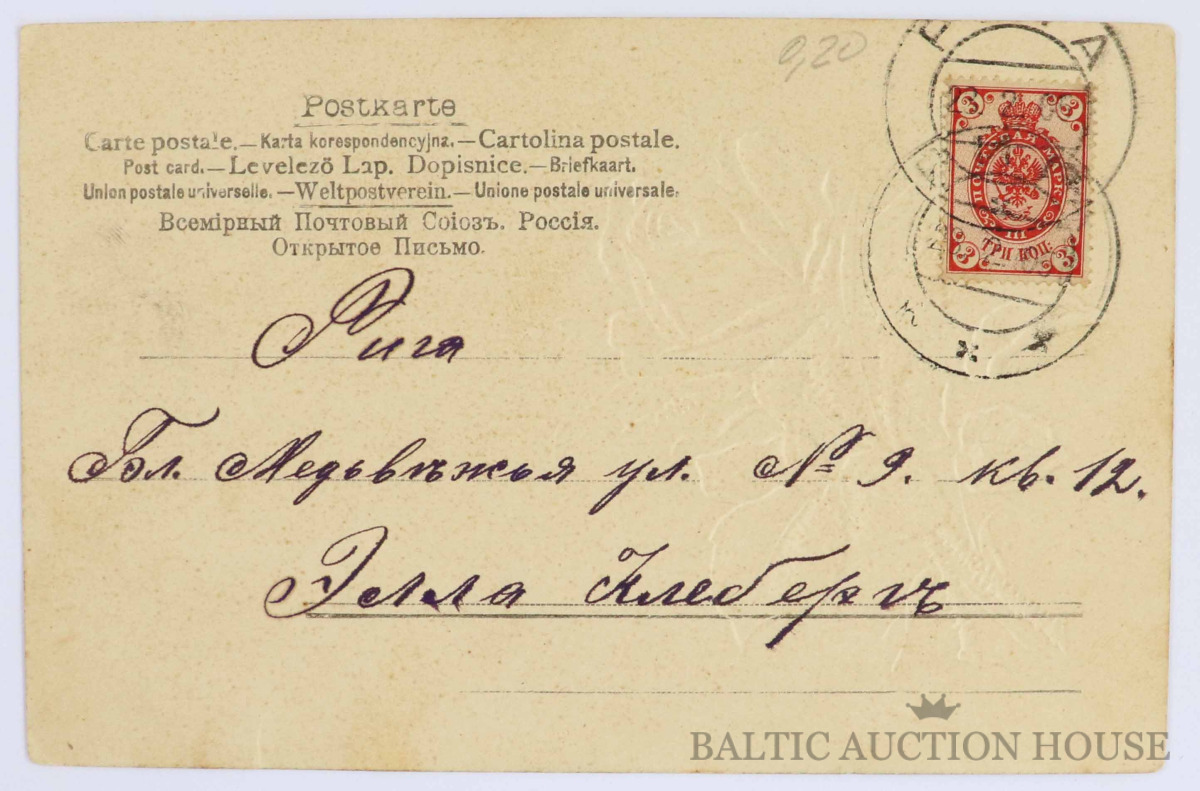 0,20
Postkarte
Carte postale.—Karta korespondencyjna.—Cartolina postale.
Post card.—Levelező Lap. Dopisnice.—Briefkaart.
Union postale universelle.—Weltpostverein.—Unione postale universale.
Всемірный Почтовый Союзъ. Россія.
Открытое Письмо.
3 3
ПОЧТОВАЯ МАРКА
III
3 ТРИ КОП. 3
Рига
Бл. Медьвѣжья ул. № 9. кв. 12.
Элла Клебергъ
BALTIC AUCTION HOUSE